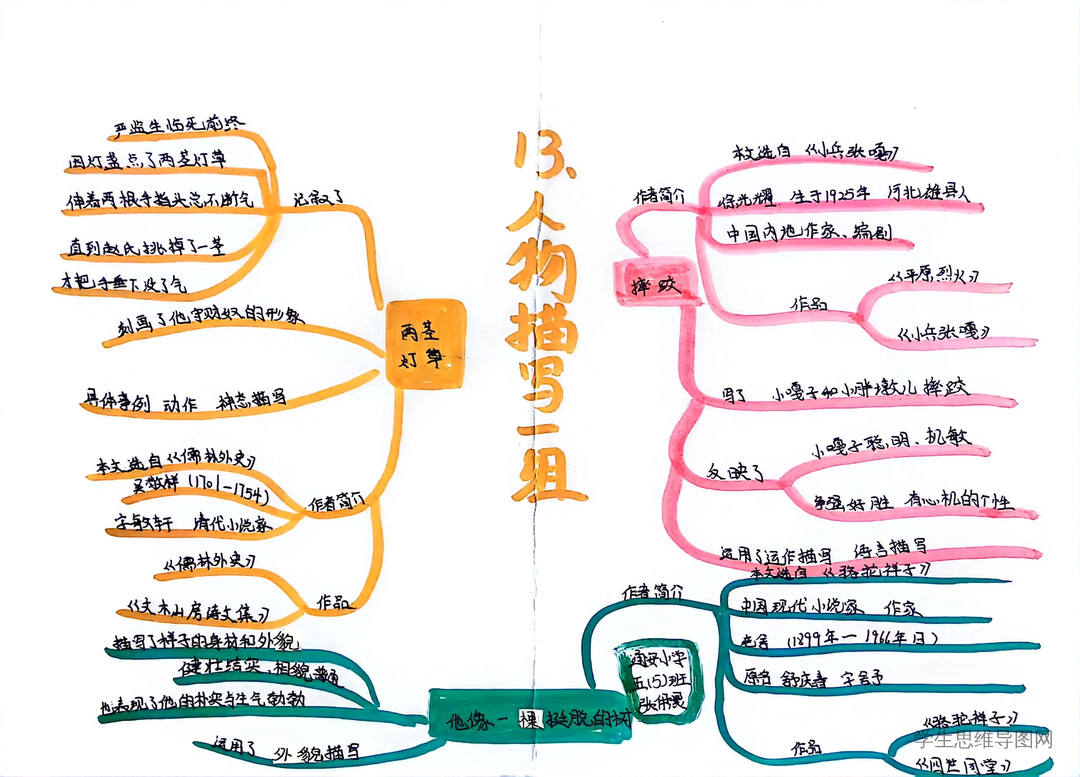 13、人物描写一组
两茎
灯草
记叙了
严监生临死前终
因灯盏点了两茎灯草
伸着两根手指头总不断气
直到赵氏挑掉了一茎
才把手垂下没了气
刻画了他守财奴的形象
具体事例 动作 神态描写
作者简介
本文选自《儒林外史》
吴敬梓(1701—1754)
字敏轩 清代小说家
作品
《儒林外史》
《文木山房诗文集》
摔跤
作者简介
本文选自《小兵张嘎》
徐光耀 生于1925年 河北雄县人
中国内地作家、编剧
作品
《平原烈火》
《小兵张嘎》
写了 小嘎子和小胖墩儿摔跤
反映了
小嘎子聪明、机敏
争强好胜 有心机的个性
运用了运作描写 语言描写
他像一棵挺脱的树
作者简介
本文选自《骆驼祥子》
中国现代小说家 作家
老舍 (1899年—1966年日)
原名 舒庆春 字舍予
作品
《骆驼祥子》
《四世同堂》
描写了祥子的身材和外貌,
健壮结实、相貌普通
也表现了他的朴实与生气勃勃
运用了 外貌描写
小学
五(5)班
学生思维导图网